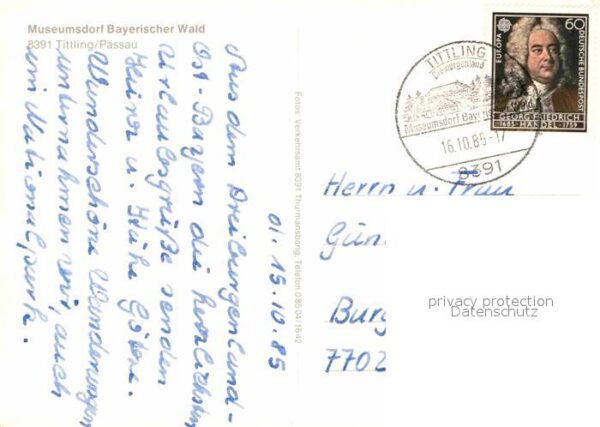 Museumsdorf Bayerischer Wald
8391 Tittling/Passau
d. 15.10.85
Aus dem Dreiburgenland -
Ost-Bayern die herzlichsten
Urlaubsgrüße senden
Heinz u. Käthe
Wunderschöne Wanderungen
unternahmen wir, auch
im Nationalpark.
Fotos: Verkehrsamt 8391 Thurmansbang, Telefon 08504/1642
TITTLING
Dreiburgenland
Museumsdorf Bayer
16.10.85-17
8391
EUROPA
60
DEUTSCHE BUNDESPOST
GEORG FRIEDRICH
1685-HÄNDEL-1759
Herrn u. Frau
Gün
Burg
7702
privacy protection
Datenschutz